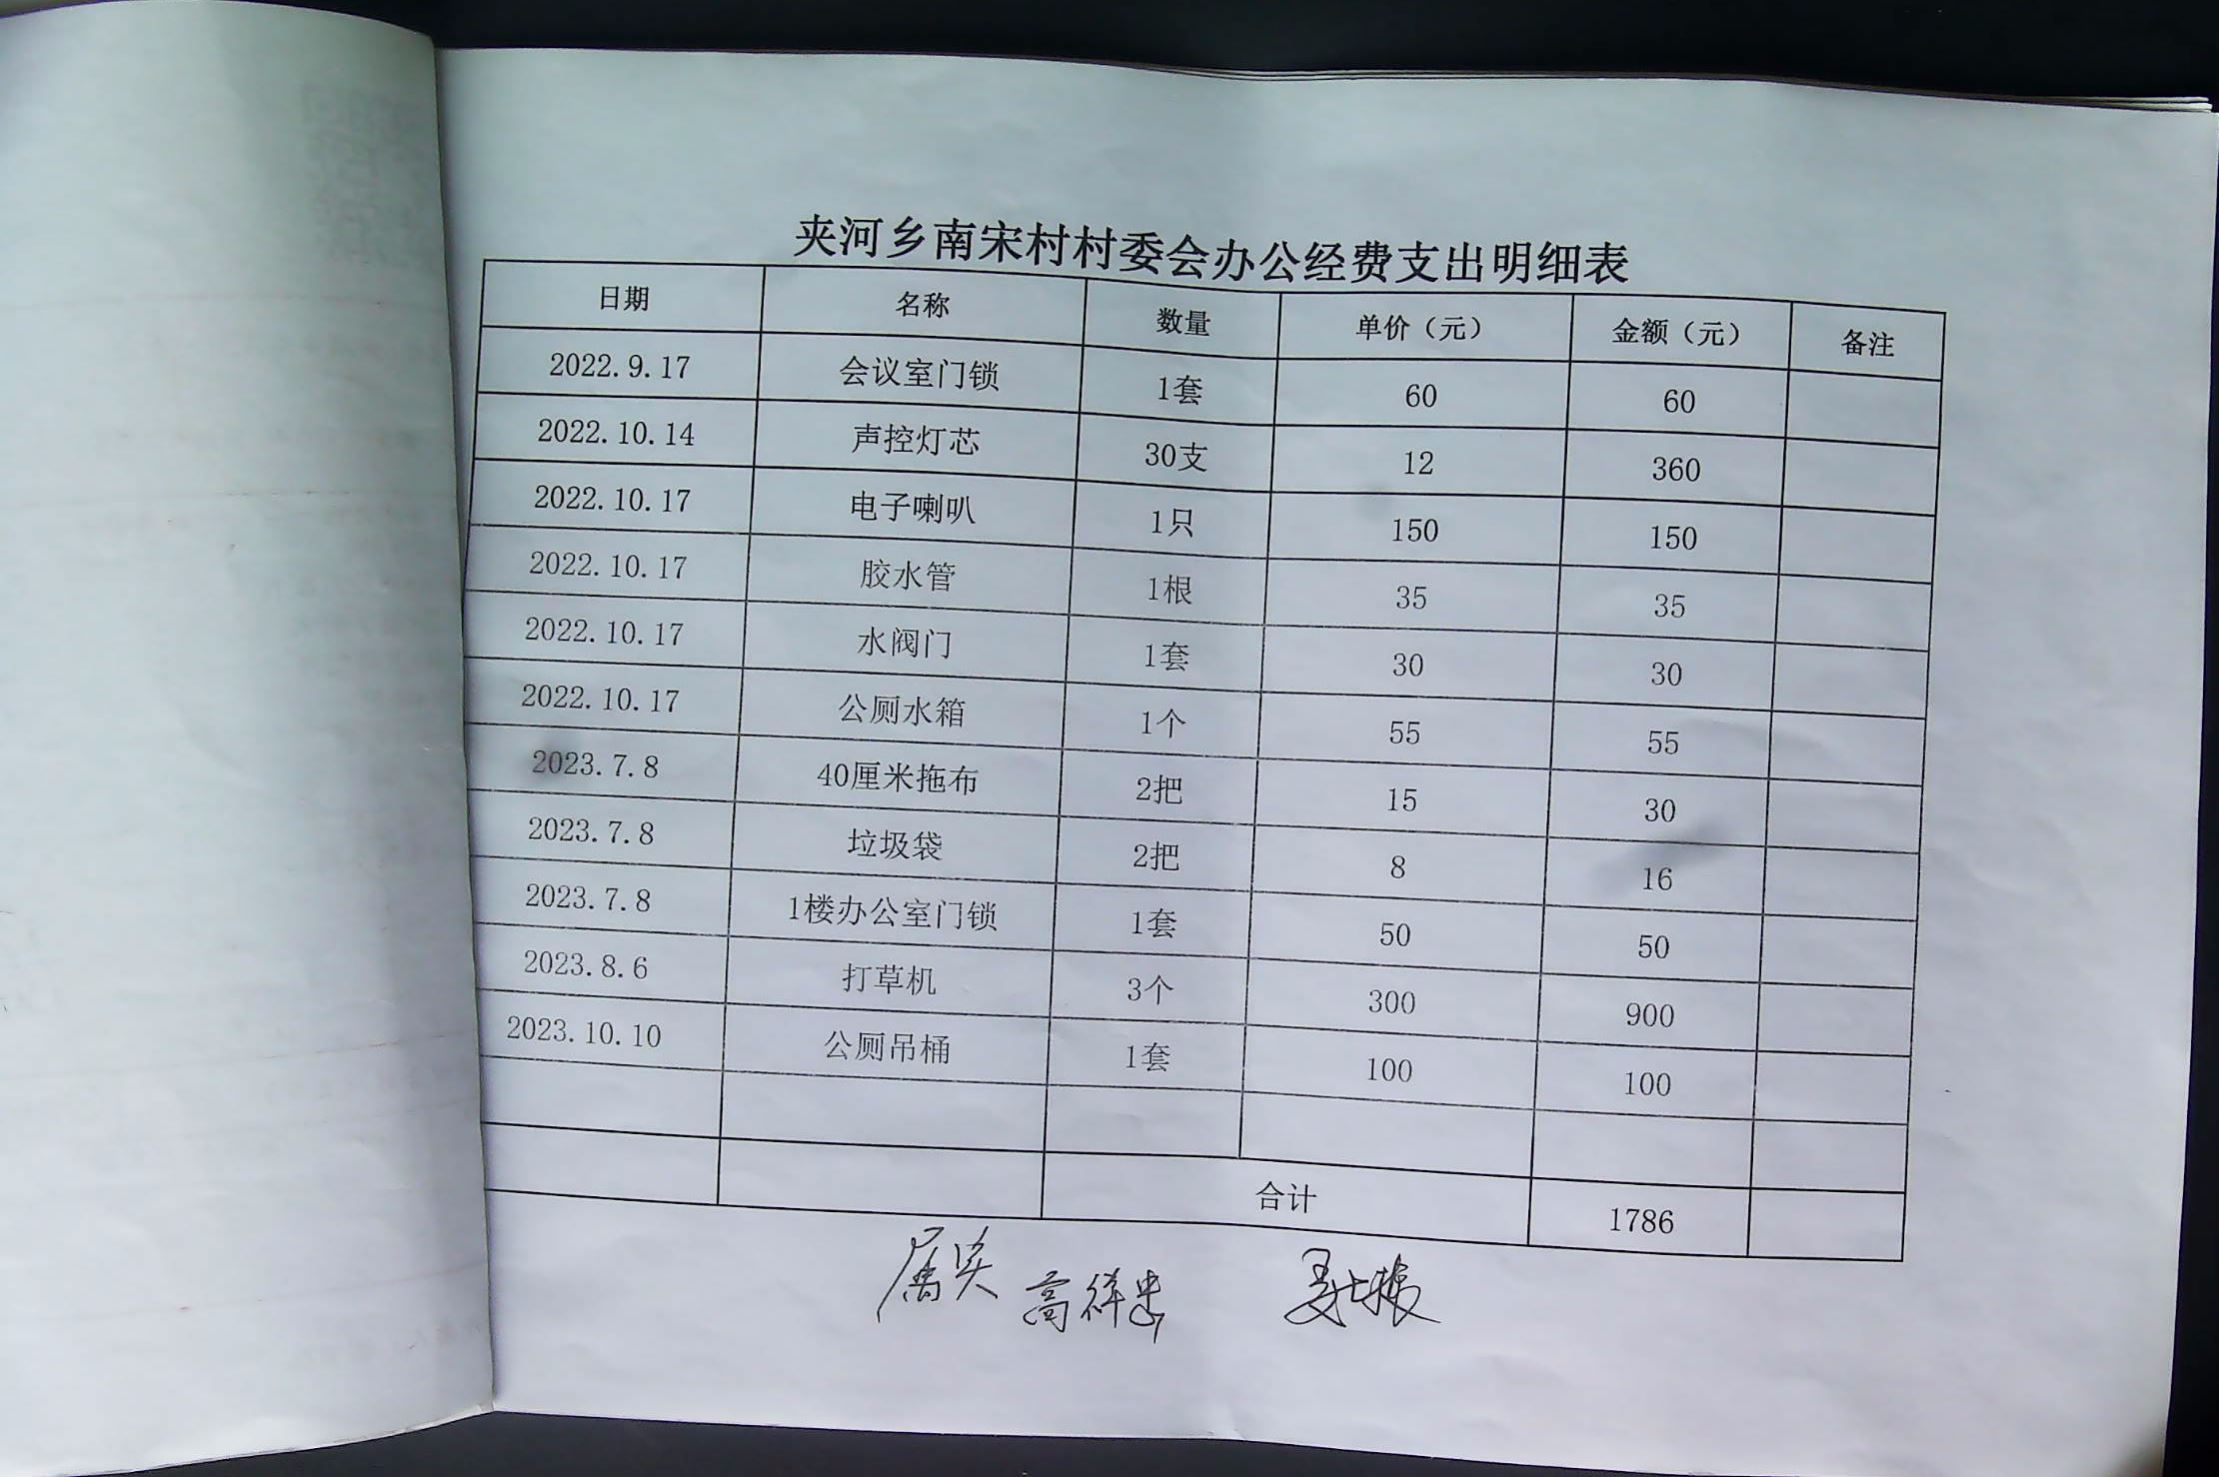 夹河乡南宋村村委会办公经费支出明细表
日期 名称 数量 单价（元） 金额（元） 备注
2022.9.17 会议室门锁 1套 60 60
2022.10.14 声控灯芯 30支 12 360
2022.10.17 电子喇叭 1只 150 150
2022.10.17 胶水管 1根 35 35
2022.10.17 水阀门 1套 30 30
2022.10.17 公厕水箱 1个 55 55
2023.7.8 40厘米拖布 2把 15 30
2023.7.8 垃圾袋 2把 8 16
2023.7.8 1楼办公室门锁 1套 50 50
2023.8.6 打草机 3个 300 900
2023.10.10 公厕吊桶 1套 100 100
合计 1786
属实 高祥忠